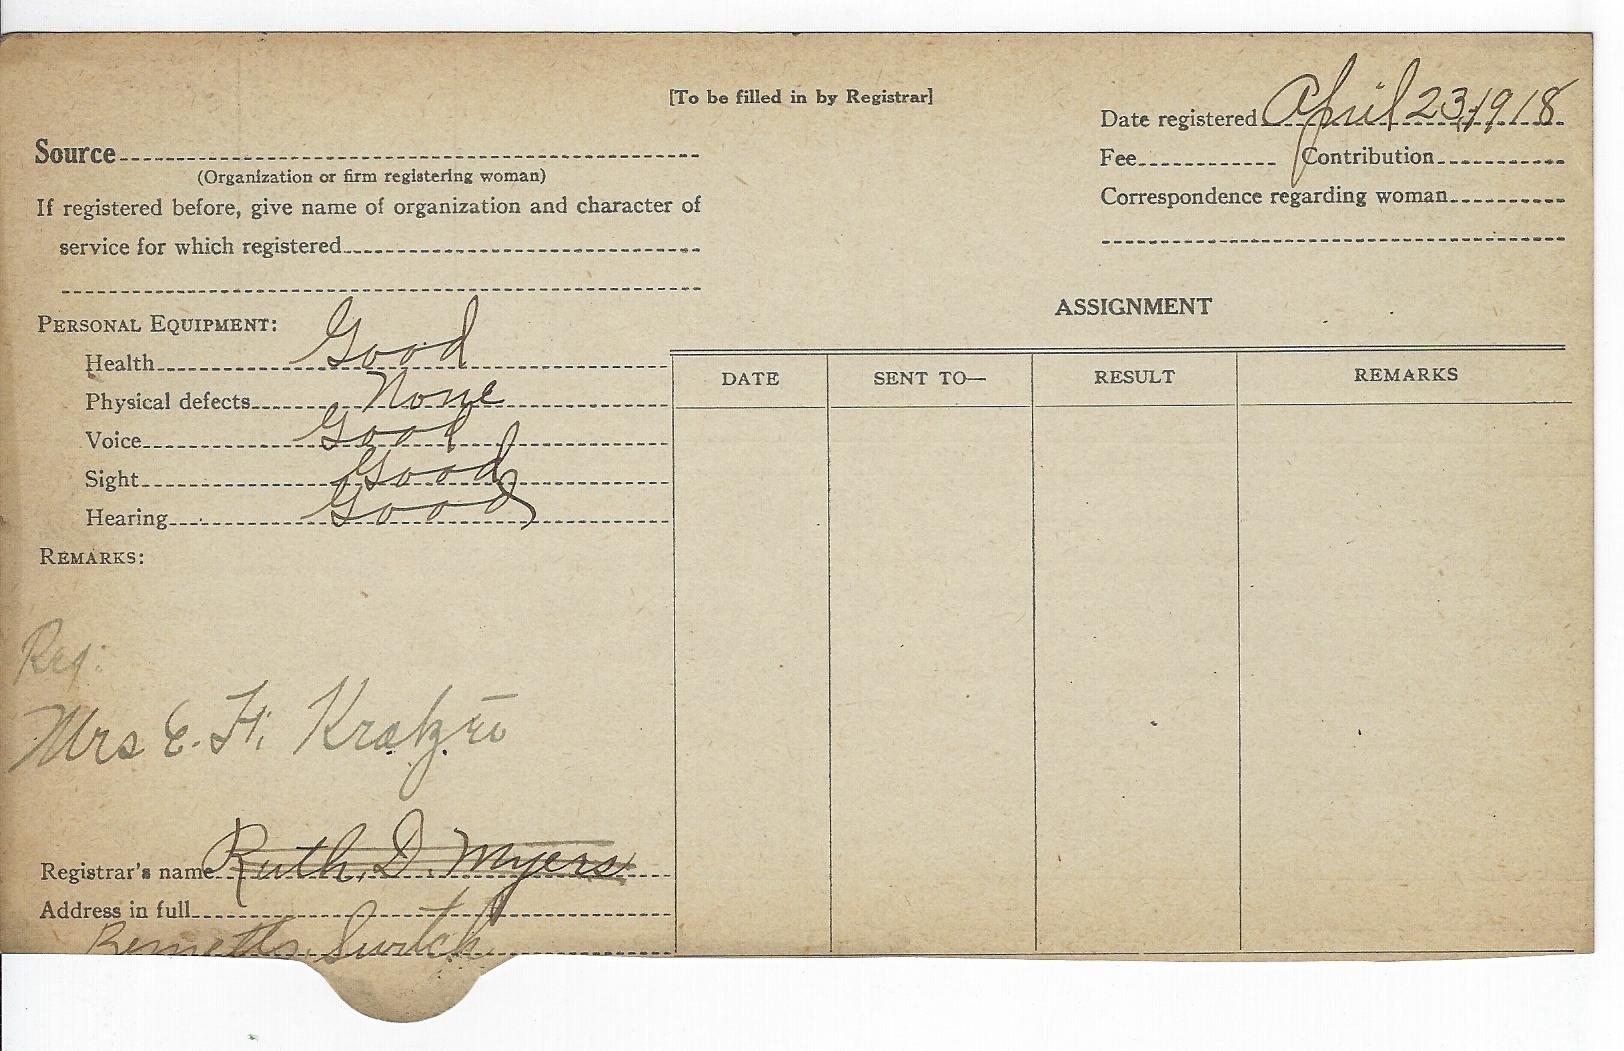 [To be filled in by Registrar]
Date registered April 23, 1918
Source
Fee Contribution
(Organization or firm registering woman)
Correspondence regarding woman
If registered before, give name of organization and character of
service for which registered
ASSIGNMENT
PERSONAL EQUIPMENT:
Health Good
Physical defects None
Voice Good
Sight Good
Hearing Good
DATE SENT TO— RESULT REMARKS
REMARKS:
Reg:
Mrs E. H.
Registrar's name Ruth, D. Myers
Address in full
Switch